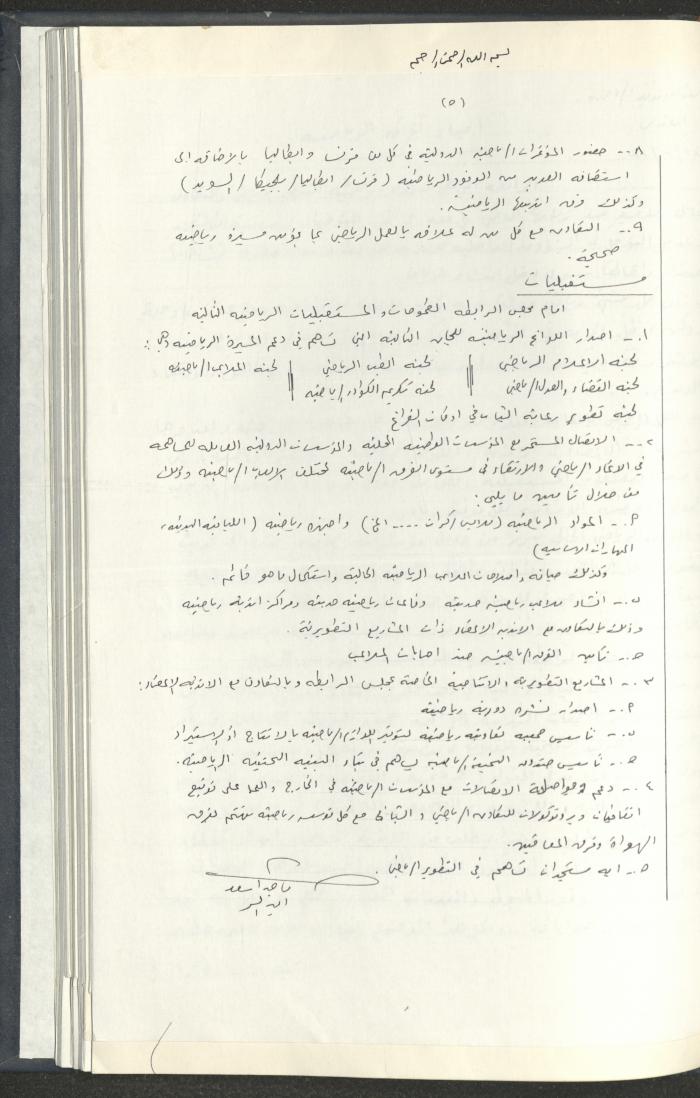 بسم الله الرحمن الرحيم
(٥)
٨ -- حضور المؤتمرات الرياضية الدولية في كل من فرنسا وايطاليا بالاضافه الى
استضافه العديد من الوفود الرياضية (فرنسا / ايطاليا / بلجيكا / السويد)
وكذلك فرق انديتها الرياضية.
٩ -- التعاون مع كل من له علاقه بالعمل الرياضي بما يؤمن مسيرة رياضيه
صحيحة.
مستقبليات
امام مجلس الرابطه الطموحات والمستقبليات الرياضيه التاليه
١ -- اصدار اللوائح الرياضيه للجان التاليه التي تساهم في دعم المسيرة الرياضيه وهي:
لجنه الاعلام الرياضي لجنه الطب الرياضي لجنه الملاعب الرياضيه
لجنه القضاء والعدل الرياضي لجنه تكريم الكوادر الرياضيه
لجنه تطوير رعاية الشباب في اوقات الفراغ
٢ -- الاتصال المستمر مع المؤسسات الوطنيه المحليه والمؤسسات الدوليه العامله للمساهمه
في الانماء الرياضي والارتقاء في مستوى الفرق الرياضيه لمختلف الالعاب الرياضيه وذلك
من خلال تأمين ما يلي:
أ -- المواد الرياضيه (ملابس / كرات ---- الخ) واجهزه رياضيه (اللياقه البدنيه،
المهارات الاساسيه)
وكذلك صيانه واصلاحات الملاعب الرياضيه الحاليه واستكمال ما هو قائم.
ب -- انشاء ملاعب رياضيه حديثه وقاعات رياضيه حديثه ومراكز اندية رياضيه
وذلك بالتعاون مع الانديه الاعضاء ذات المشاريع التطويرية.
ج -- تأمين الفرق الرياضيه ضد اصابات الملاعب
٣ -- المشاريع التطويريه والانتاجية الخاصة بمجلس الرابطه وبالتعاون مع الانديه الاعضاء:
أ -- اصدار نشره دورية رياضيه
ب -- تأسيس جمعيه تعاونيه رياضيه لتوفير اللوازم الرياضيه بالانتاج او الاستيراد
ج -- تأسيس صندوق التنمية الرياضيه يساهم في بناء البنيه التحتيه الرياضيه.
٤ -- دعم ومواصلة الاتصالات مع المؤسسات الرياضيه في الخارج والعمل على توقيع
اتفاقيات وبروتوكولات للتعاون الرياضي والشبابي مع كل مؤسسه رياضيه تهتم لفرق
الهواة وفرق المعاقين.
٥ -- ايه مستجدات تساهم في التطوير الرياضي.
ماجد اسعد
امين السر